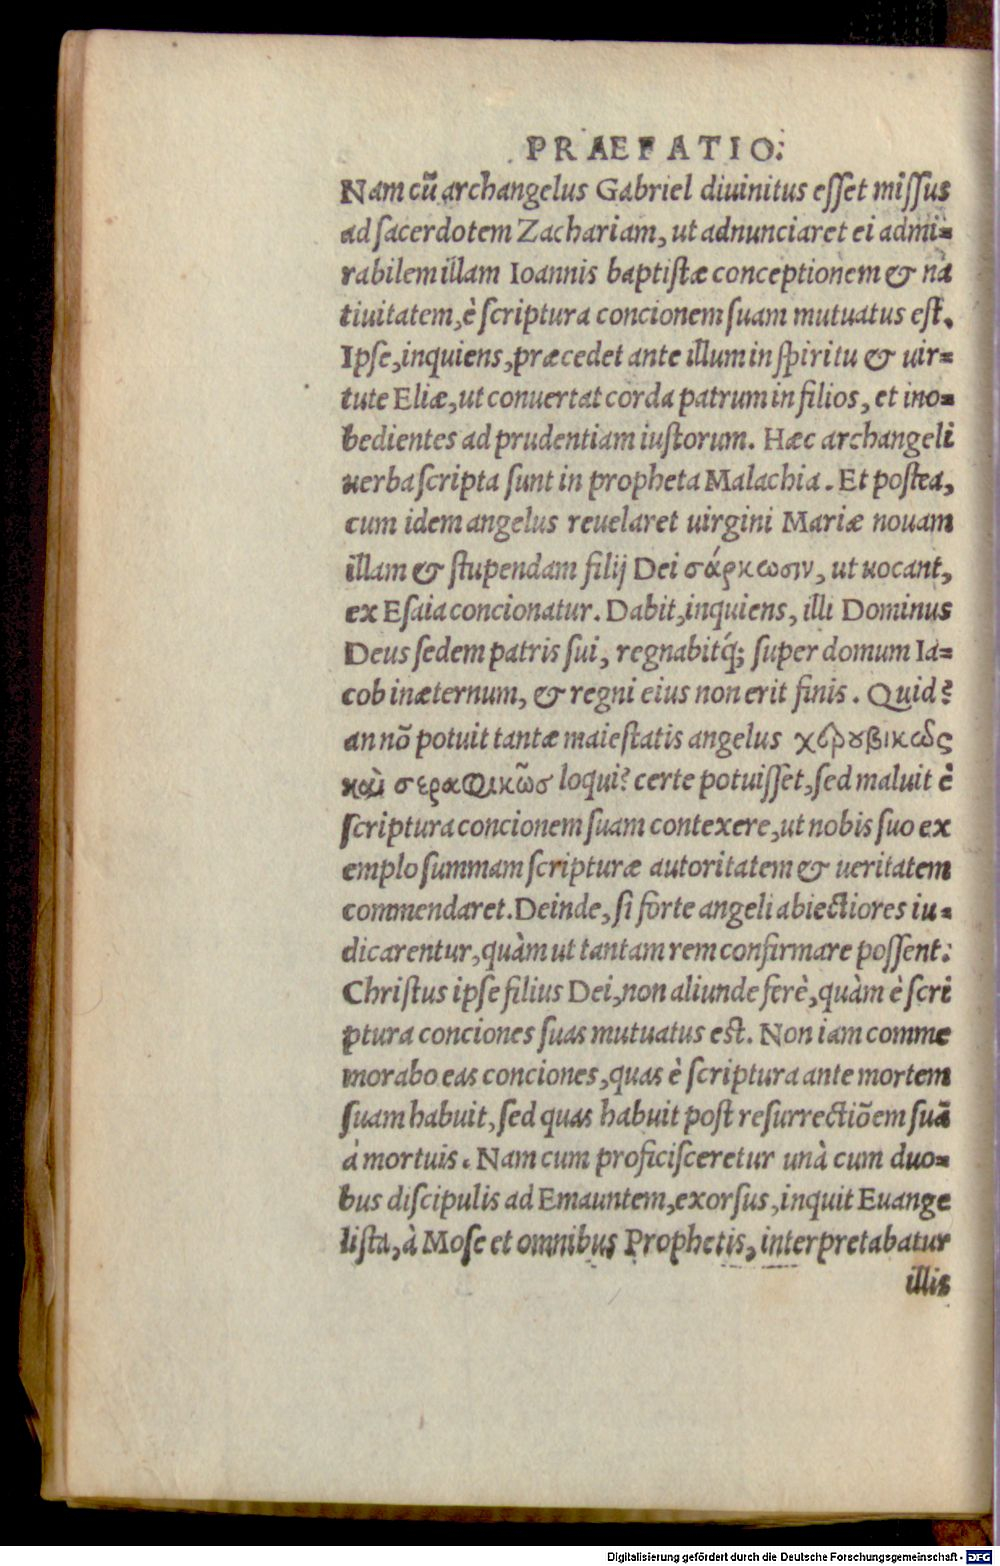 PRAEFATIO.
Nam cũ archangelus Gabriel diuinitus esset missus
ad sacerdotem Zachariam, ut adnunciaret ei admi=
rabilem illam Ioannis baptistæ conceptionem & na
tiuitatem, è scriptura concionem suam mutuatus est.
Ipse, inquiens, præcedet ante illum in spiritu & uir=
tute Eliæ, ut conuertat corda patrum in filios, et ino=
bedientes ad prudentiam iustorum. Hæc archangeli
uerba scripta sunt in propheta Malachia. Et postea,
cum idem angelus reuelaret uirgini Mariæ nouam
illam & stupendam filij Dei σάρκωσιν, ut uocant,
ex Esaia concionatur. Dabit, inquiens, illi Dominus
Deus sedem patris sui, regnabitq́; super domum Ia=
cob in æternum, & regni eius non erit finis. Quid?
an nõ potuit tantæ maiestatis angelus χερουβικῶς
καὶ σεραφικῶσ loqui? certe potuisset, sed maluit è
scriptura concionem suam contexere, ut nobis suo ex
emplo summam scripturæ autoritatem & ueritatem
commendaret. Deinde, si forte angeli abiectiores iu=
dicarentur, quàm ut tantam rem confirmare possent:
Christus ipse filius Dei, non aliunde ferè, quàm è scri
ptura conciones suas mutuatus est. Non iam comme
morabo eas conciones, quas è scriptura ante mortem
suam habuit, sed quas habuit post resurrectiõem suã
à mortuis. Nam cum proficisceretur unà cum duo=
bus discipulis ad Emauntem, exorsus, inquit Euange
lista, à Mose et omnibus Prophetis, interpretabatur
illis
Digitalisierung gefördert durch die Deutsche Forschungsgemeinschaft - DFG